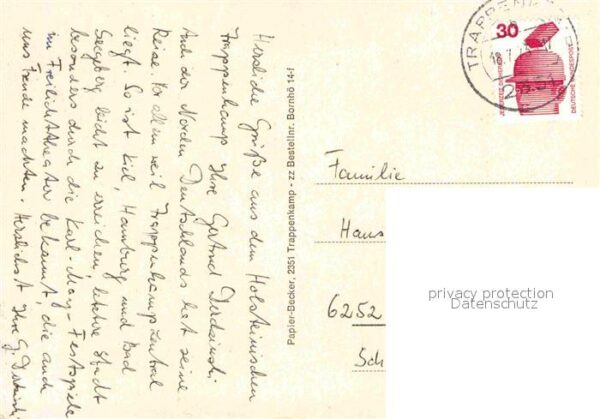 Herzliche Grüße aus dem Holsteinischen
Trappenkamp Ihre Gertrud
Auch der Norden Deutschlands hat seine
Reize. Vor allem weil Trappenkamp zentral
liegt. So ist Kiel, Hamburg und Bad
Segeberg leicht zu erreichen, letztere Stadt
besonders durch die Karl-May-Festspiele
im Freilichttheater bekannt, die auch
uns Freude machten. Herzlichst Ihre G.
Papier-Becker, 2351 Trappenkamp - zz Bestellnr. Bornhö 14-1
TRAPPENKAMP
30
JEDERZEIT SICHERHEIT
DEUTSCHE BUNDESPOST
Familie
Hans
6252
Sch
privacy protection
Datenschutz